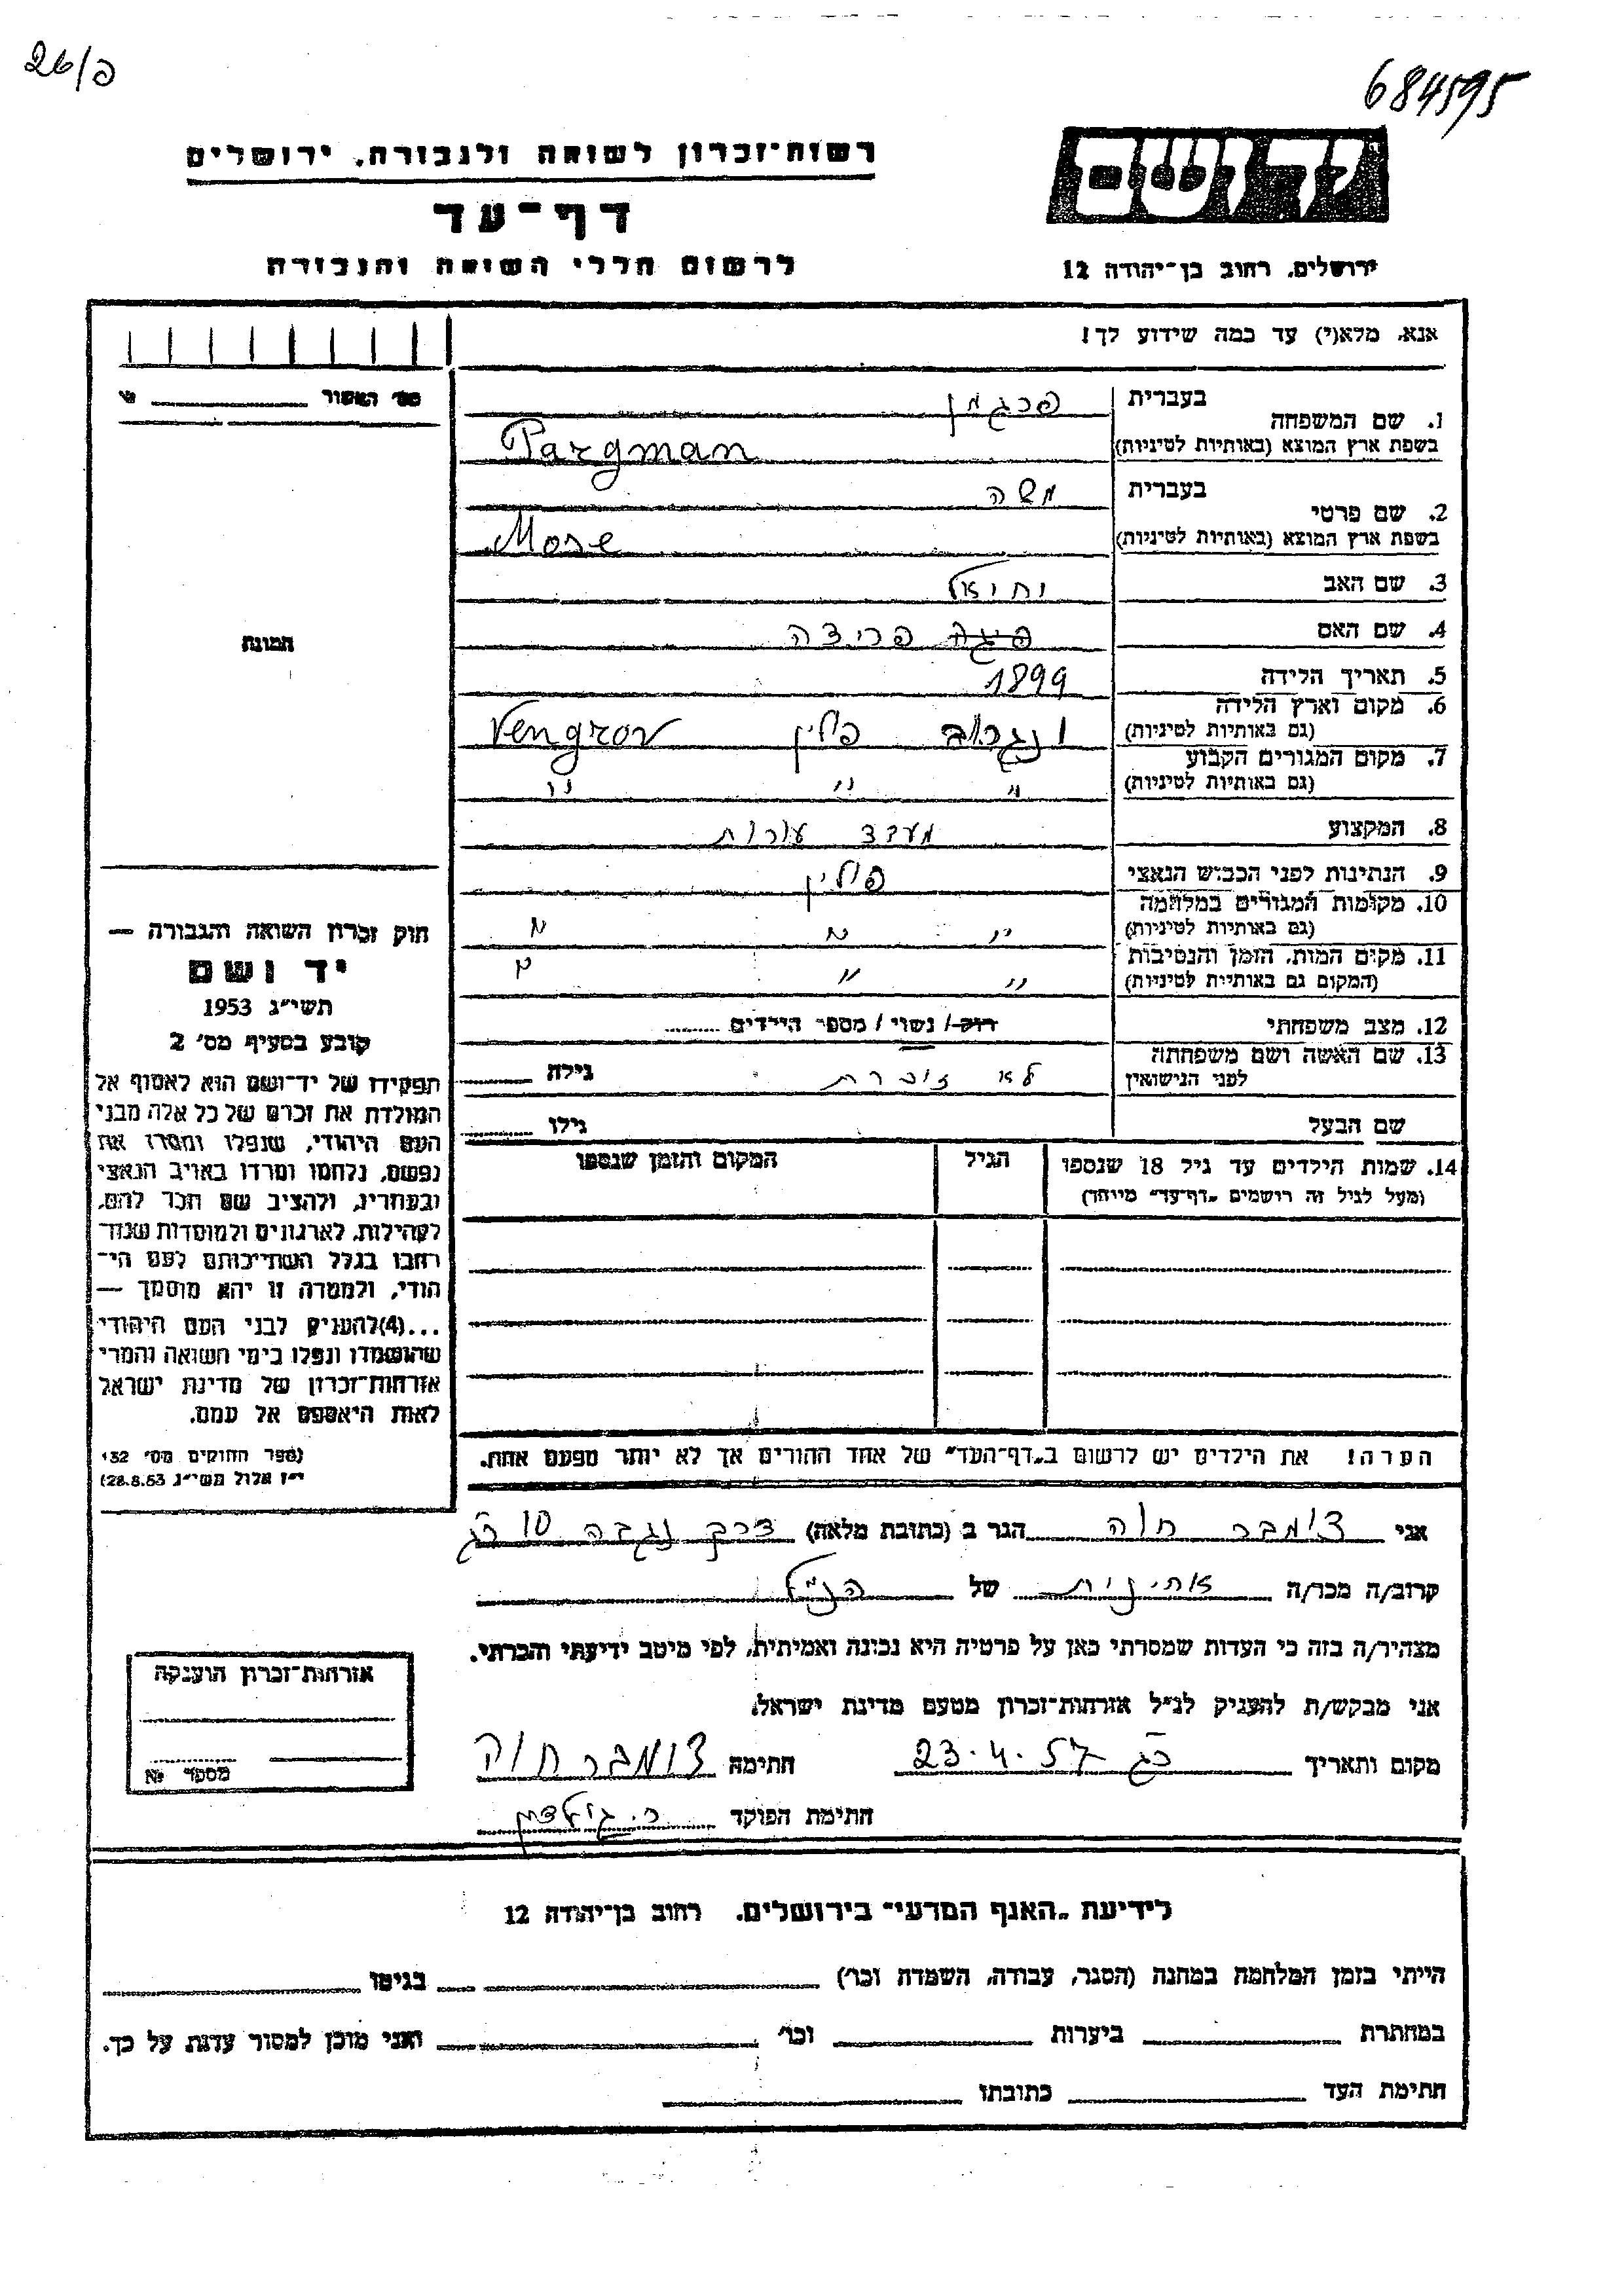 26/פ
684595
ידושם
רשות־זכרון לשואה ולגבורה, ירושלים
דף־עד
לרשום חללי השואה והגבורה
ירושלים, רחוב בן־יהודה 12
אנא, מלא(י) עד כמה שידוע לך!
מס׳ האשור
1. שם המשפחה
בעברית פרגמן
בשפת ארץ המוצא (באותיות לטיניות) Pargman
2. שם פרטי
בעברית משה
בשפת ארץ המוצא (באותיות לטיניות) Mose
3. שם האב יחיאל
4. שם האם פייגה פרידה
תמונה
5. תאריך הלידה 1899
6. מקום וארץ הלידה
(גם באותיות לטיניות) ונגרוב פולין Vengrov
7. מקום המגורים הקבוע
(גם באותיות לטיניות) " " "
8. המקצוע מעבד עורות
9. הנתינות לפני הכבוש הנאצי פולין
10. מקומות המגורים במלחמה
(גם באותיות לטיניות) " " "
11. מקום המות, הזמן והנסיבות
(המקום גם באותיות לטיניות) " " "
12. מצב משפחתי רוק / נשוי / מספר הילדים
13. שם האשה ושם משפחתה
לפני הנישואין לא זוכרת גילה
שם הבעל גילו
14. שמות הילדים עד גיל 18 שנספו הגיל המקום והזמן שנספו
(מעל לגיל זה רושמים „דף־עד" מיוחד)
חוק זכרון השואה והגבורה —
יד ושם
תשי״ג 1953
קובע בסעיף מס׳ 2
תפקידו של יד־ושם הוא לאסוף אל
המולדת את זכרם של כל אלה מבני
העם היהודי, שנפלו ומסרו את
נפשם, נלחמו ומרדו באויב הנאצי
ובעוזריו, ולהציב שם וזכר להם,
לקהילות, לארגונים ולמוסדות שנח־
רבו בגלל השתייכותם לעם הי־
הודי, ולמטרה זו יהא מוסמך —
...(4)להעניק לבני העם היהודי
שהושמדו ונפלו בימי השואה והמרי
אזרחות־זכרון של מדינת ישראל
לאות היאספם אל עמם.
(ספר החוקים מס׳ 132,
י״ז אלול תשי״ג 28.8.53)
הערה! את הילדים יש לרשום ב„דף־העד" של אחד ההורים אך לא יותר מפעם אחת.
אני צימבר חוה הגר ב (כתובת מלאה) דרך נגבה 10 רג
קרוב/ה מכר/ה אחינית של הנ״ל
מצהיר/ה בזה כי העדות שמסרתי כאן על פרטיה היא נכונה ואמיתית, לפי מיטב ידיעתי והכרתי.
אני מבקש/ת להעניק לנ״ל אזרחות־זכרון מטעם מדינת ישראל.
מקום ותאריך רג 23.4.57 חתימה צימבר חוה
חתימת הפוקד
אזרחות־זכרון הוענקה
מספר №
לידיעת „האגף המדעי" בירושלים, רחוב בן־יהודה 12
הייתי בזמן המלחמה במחנה (הסגר, עבודה, השמדה וכו׳) בגיטו
במחתרת ביערות וכו׳ ואני מוכן למסור עדות על כך.
חתימת העד כתובתו